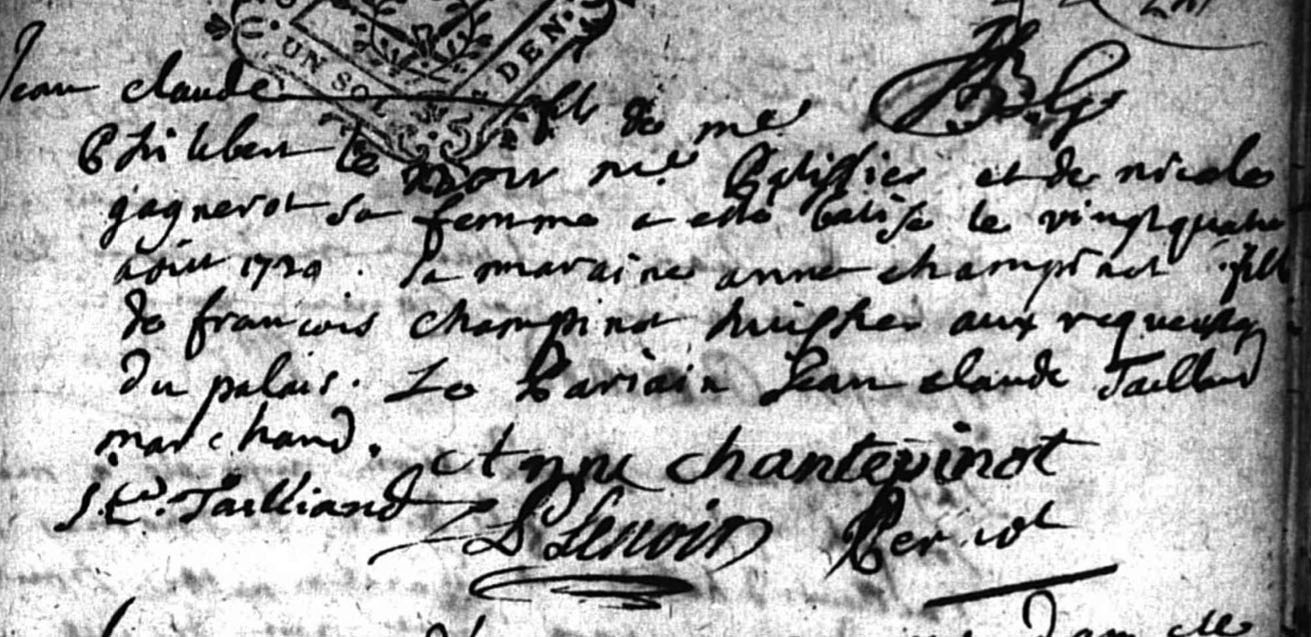 UN SOL DEN.
Jean claude fils de me
Philibert le Noir me Patissier et de nicole
gagnerot sa femme a esté batisé le vingt quatre
aout 1729. Sa maraine anne champinot fille
de francois champinot huissier aux requestes
du palais. Le Pariain Jean claude Tailland
marchand. Anne chantepinot
J. C. Tailliand P Lenoir Periot